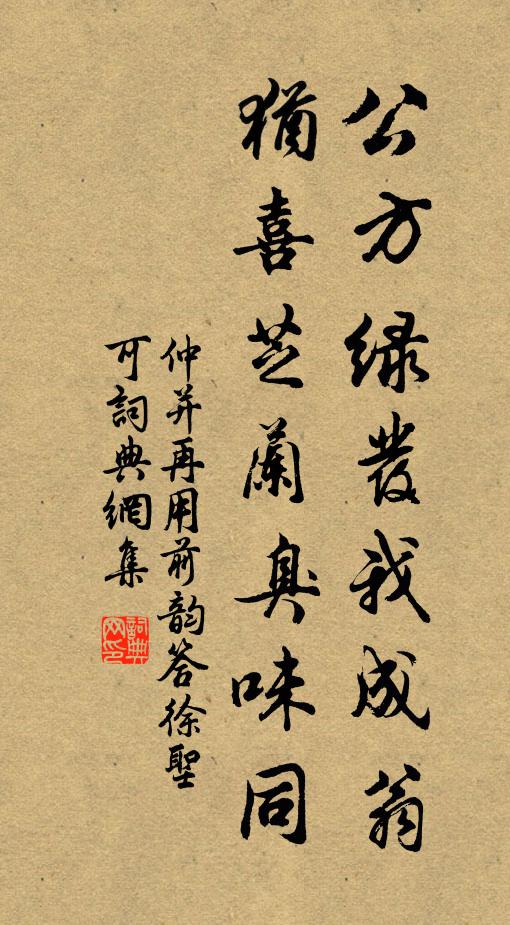 公方綠發我成翁
猶喜芝蘭臭味同
仲并再用前韵答徐聖
可詞典網集
詞典網印